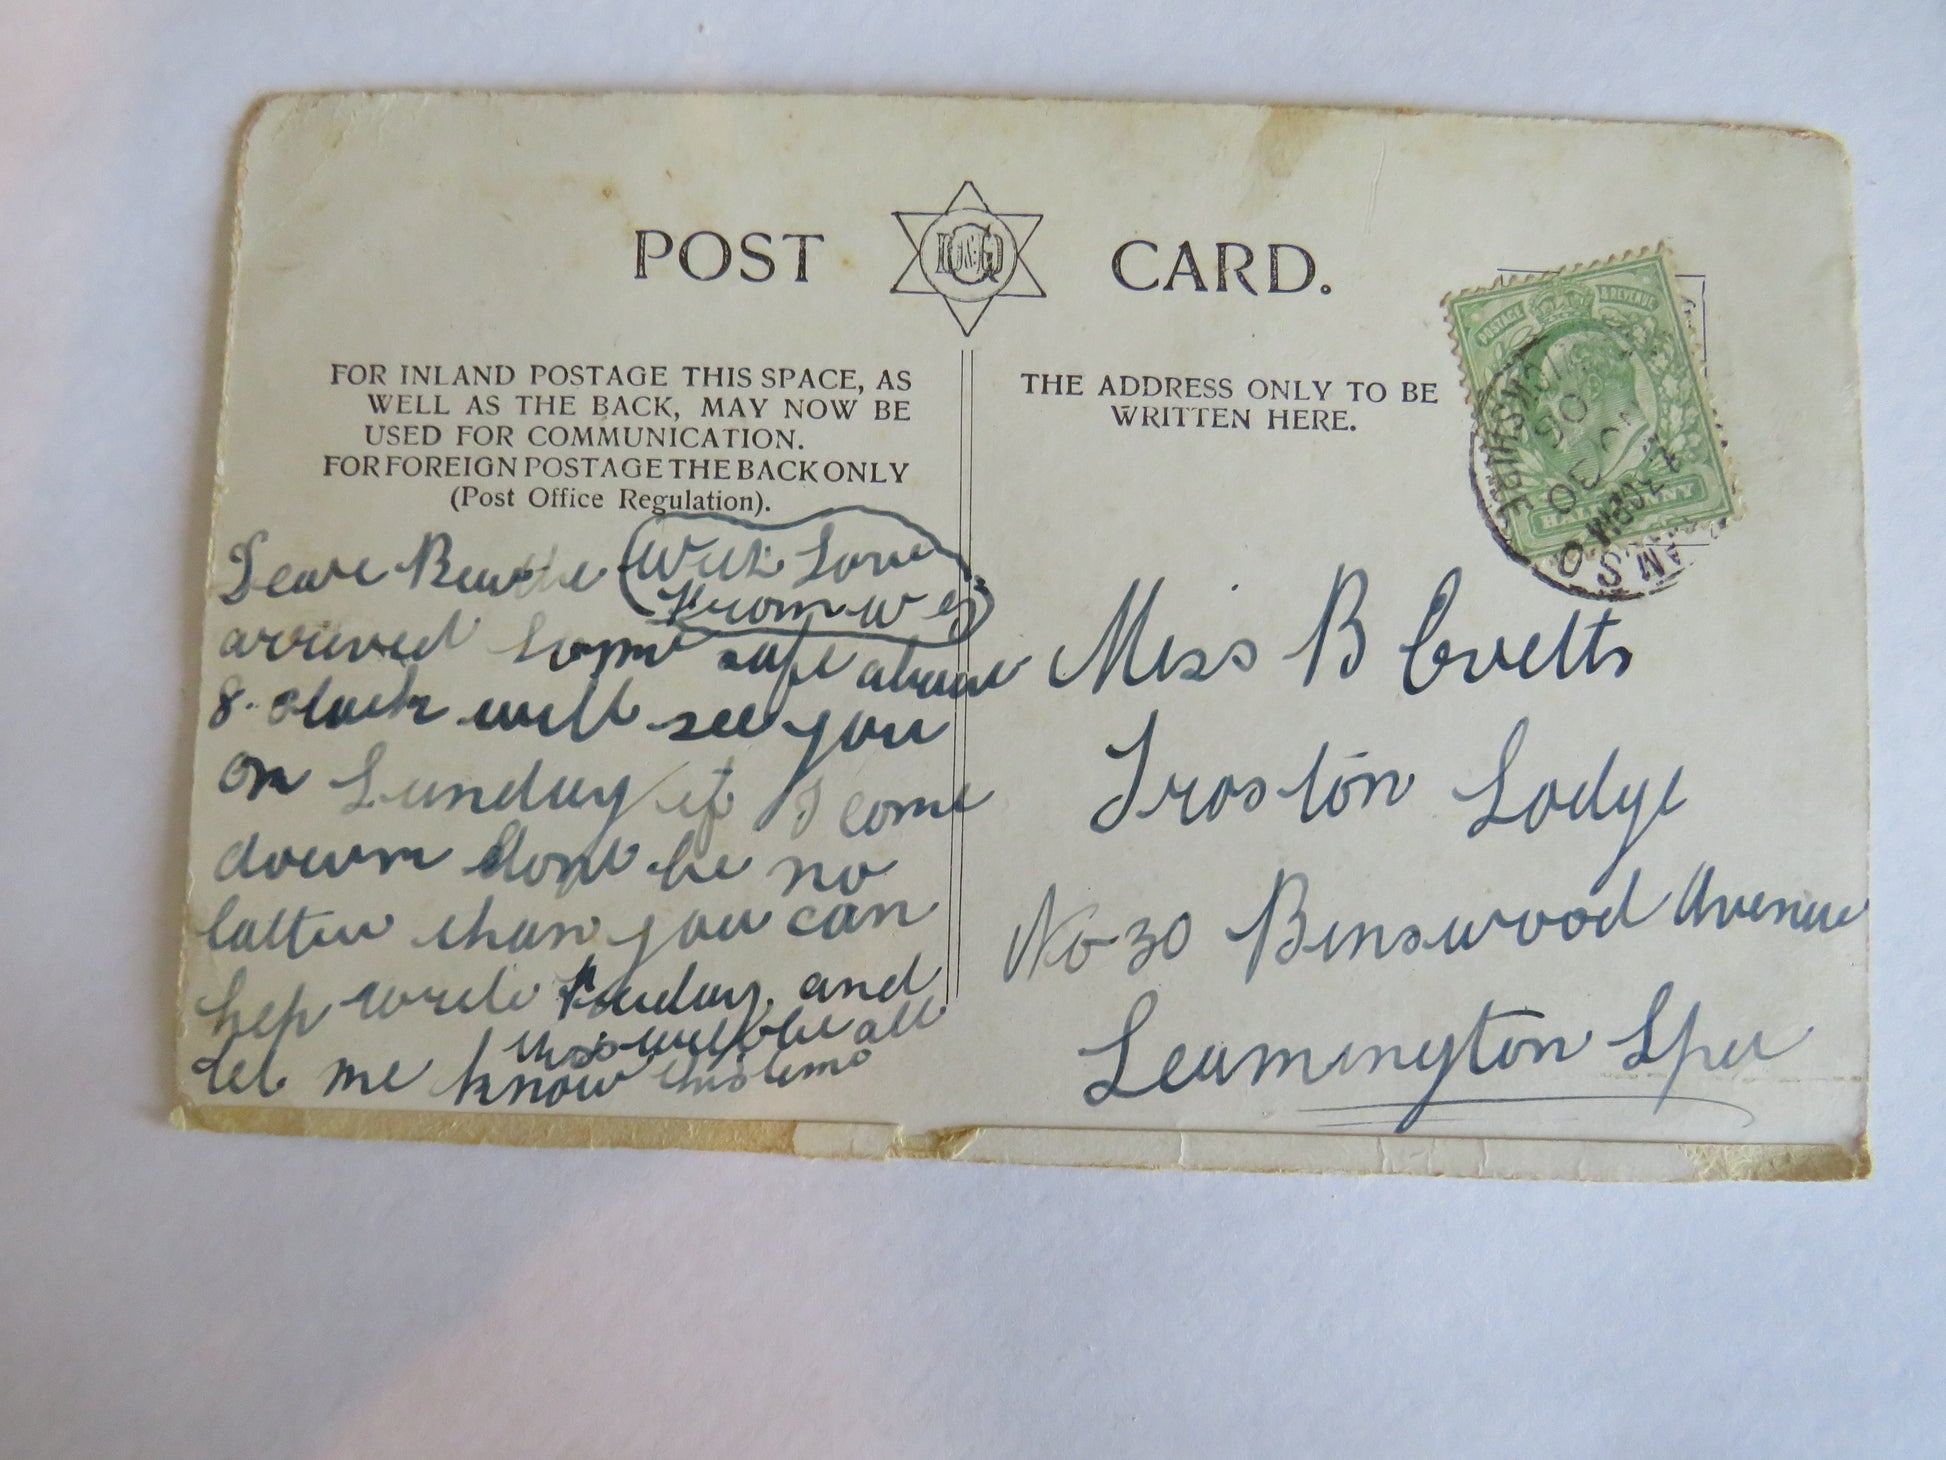 POST CARD.
FOR INLAND POSTAGE THIS SPACE, AS
WELL AS THE BACK, MAY NOW BE
USED FOR COMMUNICATION.
FOR FOREIGN POSTAGE THE BACK ONLY
(Post Office Regulation).
Deare Beartie
With Love
From W
arrived home safe about
8. clock will see you
on Sunday if I come
down dont be no
latter than you can
hep write Friday and
this will be all
let me know this time
THE ADDRESS ONLY TO BE
WRITTEN HERE.
POSTAGE & REVENUE
HALFPENNY
Miss B Evetts
Troston Lodge
No 30 Binswood Avenue
Leamington Spa